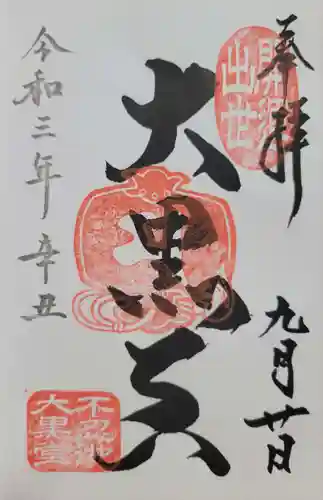 奉拝
九月廿日
大黒天
令和三年辛丑
開運
出世
不忍池
大黒堂